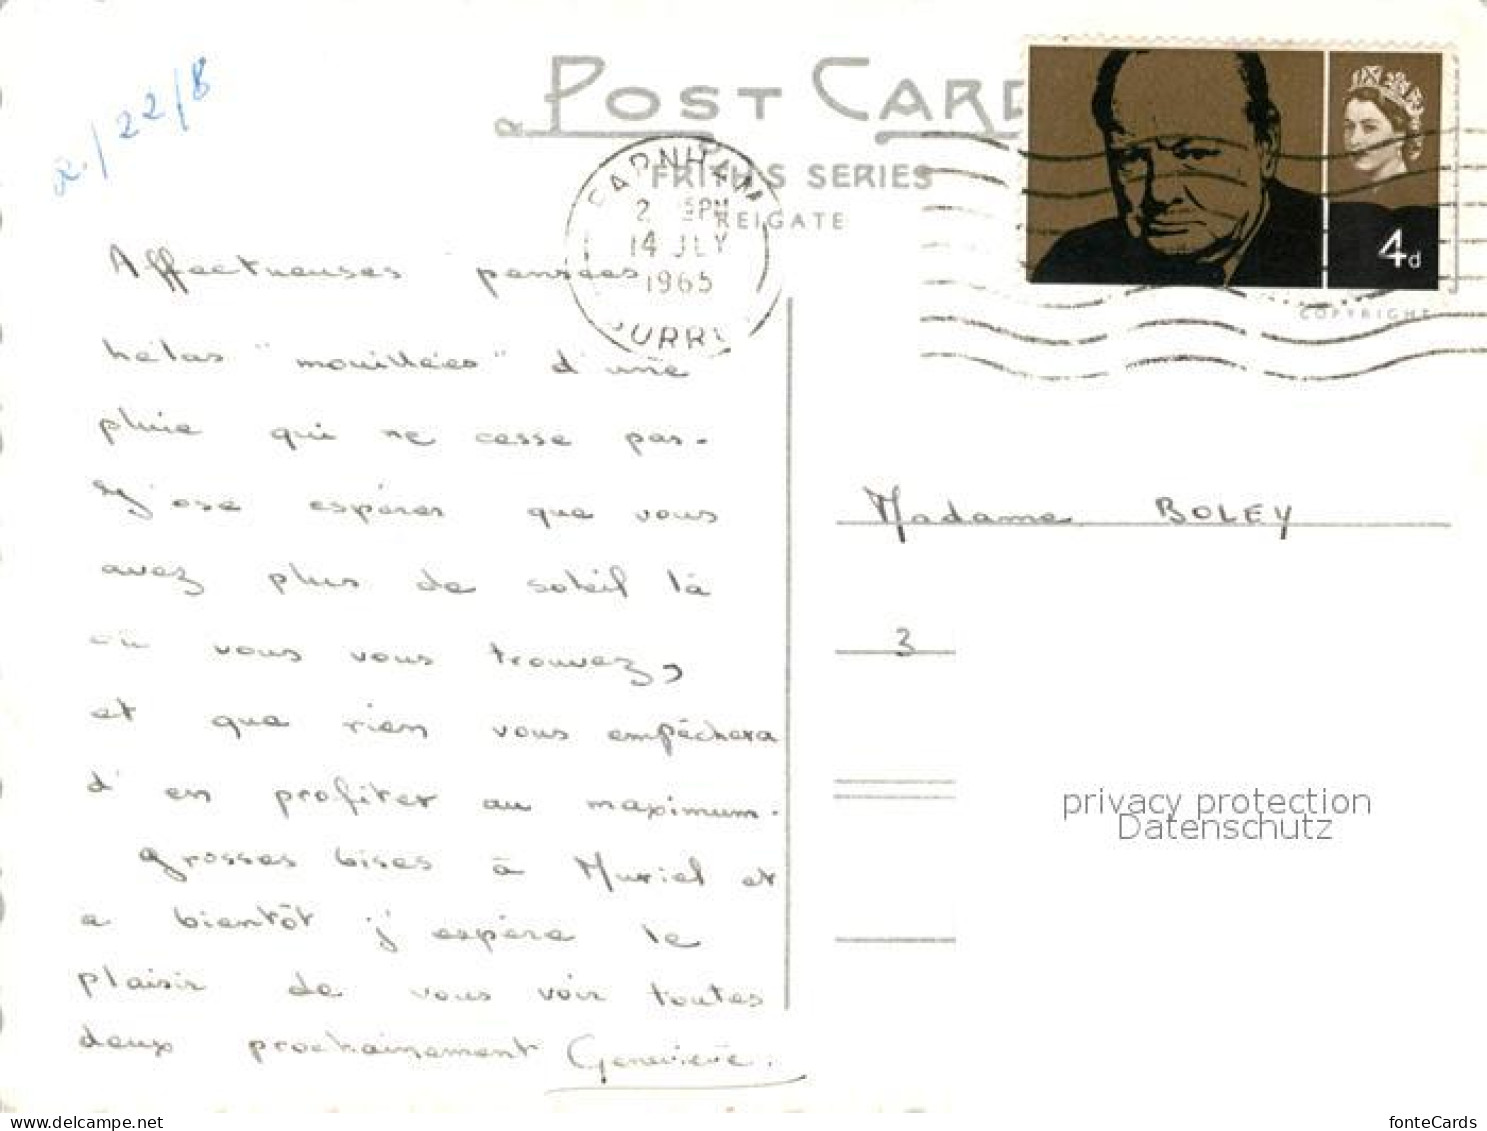 a./22/8
POST CARD
FRITH'S SERIES
REIGATE
FARNHAM
2 15PM
14 JLY
1965
SURREY
4d
COPYRIGHT
Affectueuses pensées
hélas "mouillées" d'une
pluie qui ne cesse pas.
J'ose espérer que vous
avez plus de soleil là
où vous vous trouvez,
et que rien vous empêchera
d'en profiter au maximum.
Grosses bises à Muriel et
a bientôt j'espère le
plaisir de vous voir toutes
deux prochainement Geneviève.
Madame BOLEY
3
privacy protection
Datenschutz
www.delcampe.net
fonteCards